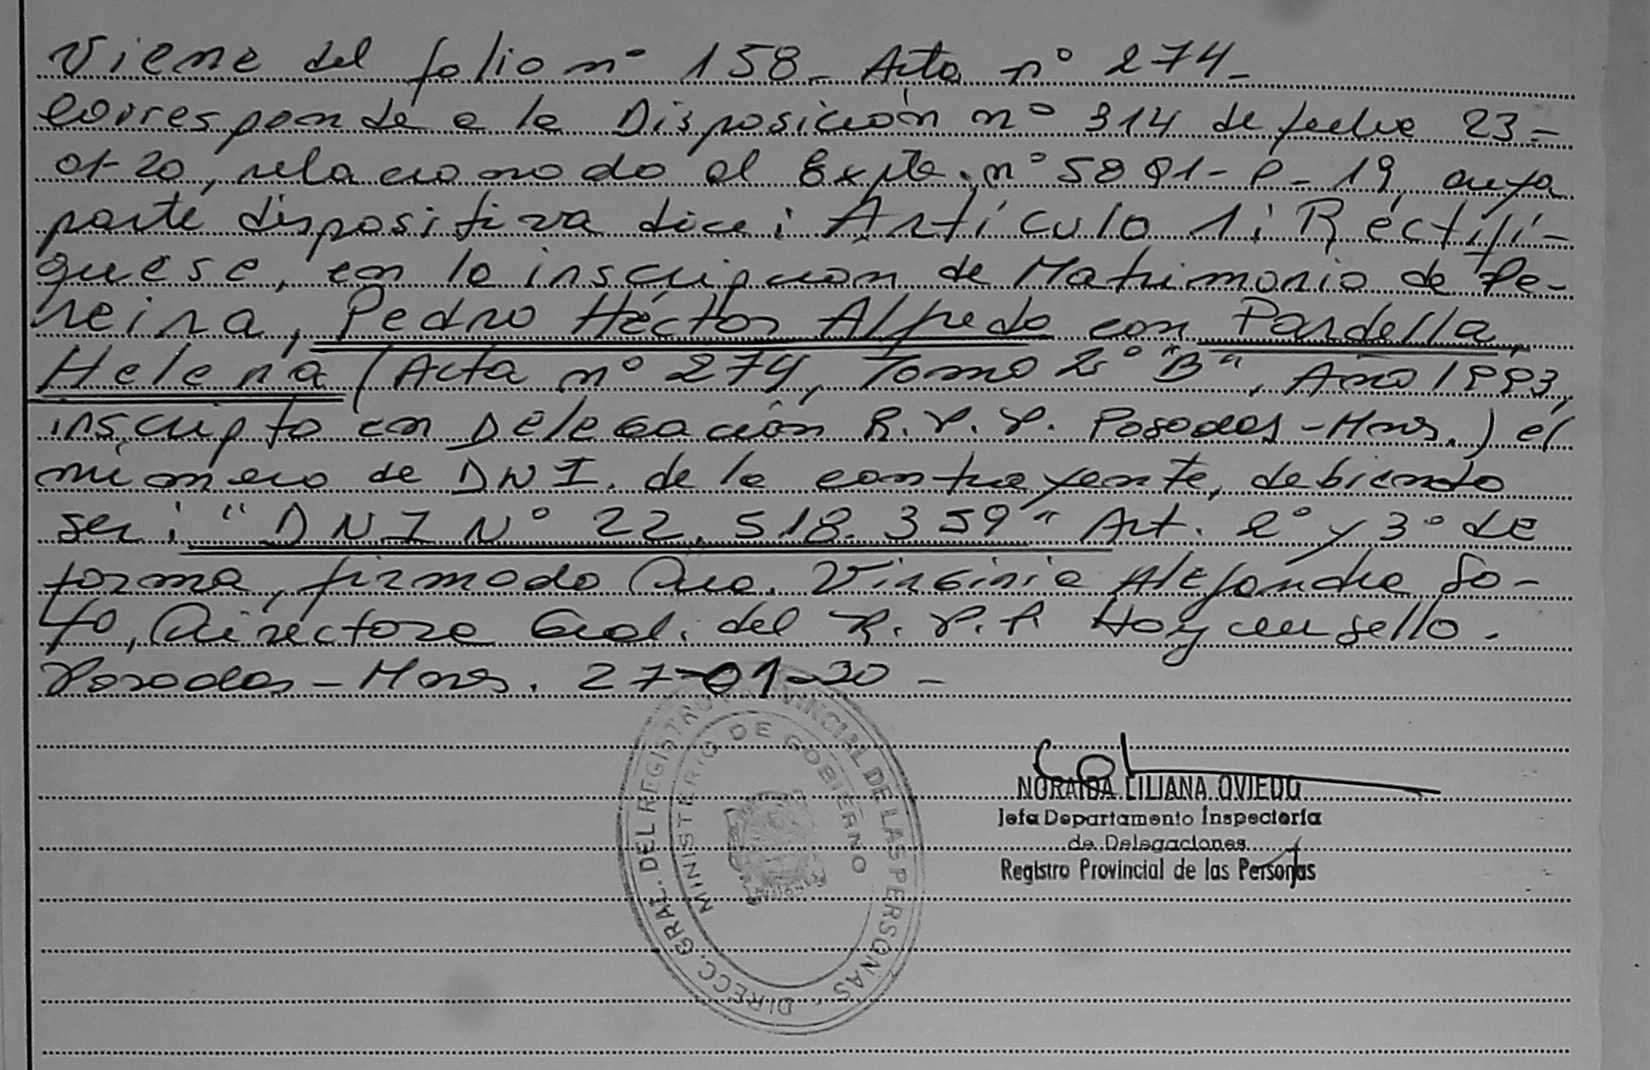 Viene del folio nº 158- Acta nº 274-
Corresponde a la Disposición nº 314 de fecha 23-
01-20, relacionado al Expte. nº 5891-P-19, cuya
parte dispositiva dice: Artículo 1: Rectifí-
quese, en la inscripcion de Matrimonio de Pe-
reira, Pedro Héctor Alfredo con Pardella,
Helena (Acta nº 274, Tomo 2º "B", Año 1993,
inscripto en Delegación R.P.P. Posadas-Mnes.) el
número de DNI. de la contrayente, debiendo
ser: "DNI Nº 22.518.359" Art. 2º y 3º de
forma, firmado Dra. Virginia Alejandra So-
to, Directora Gral. del R.P.P. Hay un sello.
Posadas-Mnes. 27-01-20-
NORAIDA LILIANA OVIEDO
Jefa Departamento Inspectoría
de Delegaciones
Registro Provincial de las Personas
DIRECC. GRAL. DEL REGISTRO PROVINCIAL DE LAS PERSONAS
MINISTERIO DE GOBIERNO